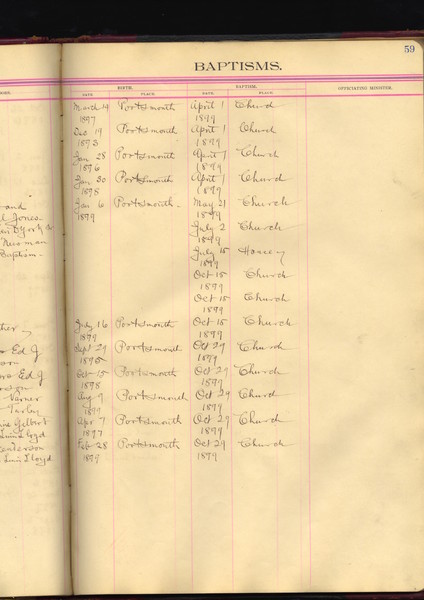 59
BAPTISMS.
BIRTH. BAPTISM. OFFICIATING MINISTER.
DATE. PLACE. DATE. PLACE.
March 19 Portsmouth April 1 Church
1897 1899
Dec 19 Portsmouth April 1 Church
1899
Jan 28 Portsmouth April 1 Church
1896 1899
Jan 30 Portsmouth April 1 Church
1898 1899
and Jan 6 Portsmouth - May 21 Church
Jones 1899 1899
July 2 Church
1899
Baptism - July 15
1899
Oct 15 Church
1899
Oct 15 Church
1899
July 16 Portsmouth Oct 15 Church
1899 1899
Ed J Sept 29 Portsmouth Oct 29 Church
1899
Ed J Oct 15 Portsmouth Oct 29 Church
1898 1899
Verner Aug 9 Portsmouth Oct 29 Church
1899
Gilbert Apr 7 Portsmouth Oct 29 Church
Lloyd 1897 1899
Feb 28 Portsmouth Oct 29 Church
Lloyd 1899 1899